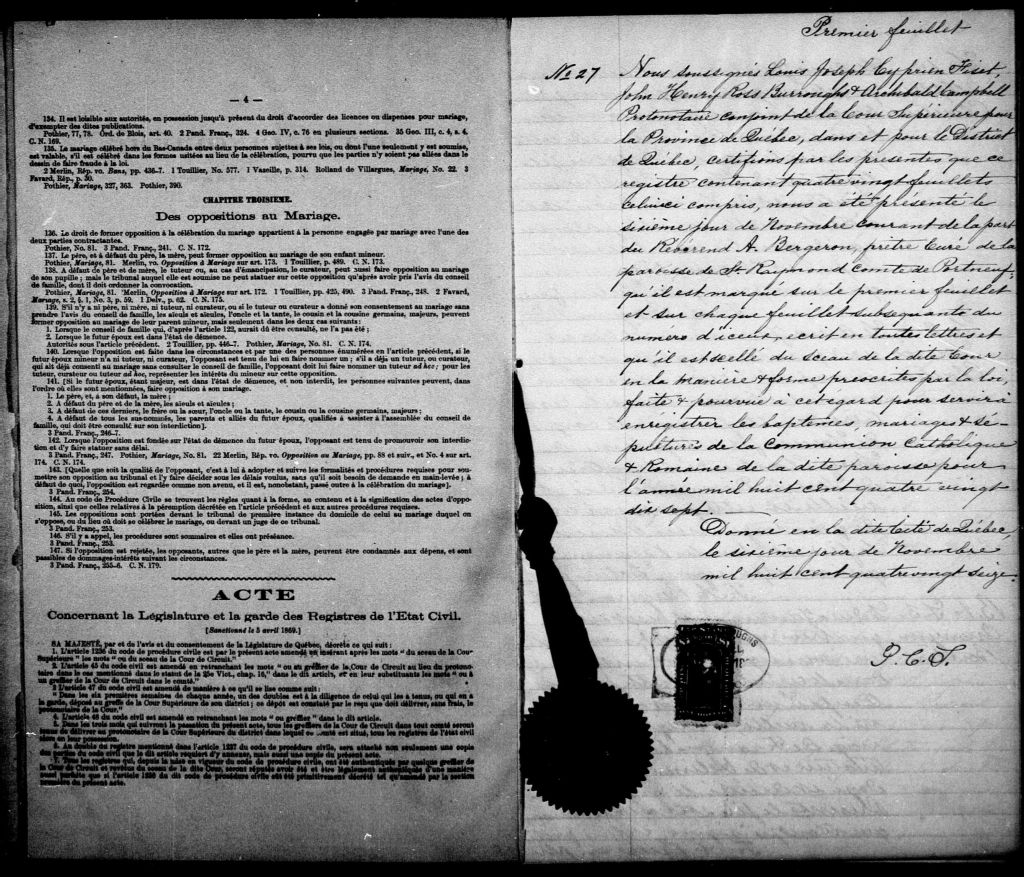 — 4 —
134. Il est loisible aux autorités, en possession jusqu'à présent du droit d'accorder des licences ou dispenses pour mariage,
d'exempter des dites publications.
Pothier, 77, 78. Ord. de Blois, art. 40. 2 Pand. Franç., 324. 4 Geo. IV, c. 76 en plusieurs sections. 35 Geo. III, c. 4, s. 4.
C. N. 169.
135. Le mariage célébré hors du Bas-Canada entre deux personnes sujettes à ses lois, ou dont l'une seulement y est soumise,
est valable, s'il est célébré dans les formes usitées au lieu de la célébration, pourvu que les parties n'y soient pas allées dans le
dessin de faire fraude à la loi.
2 Merlin, Rép. vo. Bans, pp. 436-7. 1 Touillier, No. 577. 1 Vazeille, p. 314. Rolland de Villargues, Mariage, No. 22. 3
Favard, Rép., p. 30.
Pothier, Mariage, 327, 363. Pothier, 390.
CHAPITRE TROISIEME.
Des oppositions au Mariage.
136. Le droit de former opposition à la célébration du mariage appartient à la personne engagée par mariage avec l'une des
deux parties contractantes.
Pothier, No. 81. 3 Pand. Franç., 241. C. N. 172.
137. Le père, et à défaut du père, la mère, peut former opposition au mariage de son enfant mineur.
Pothier, Mariage, 81. Merlin, vo. Opposition à Mariage sur art. 173. 1 Touillier, p. 489. C. N. 173.
138. A défaut de père et de mère, le tuteur ou, au cas d'émancipation, le curateur, peut aussi faire opposition au mariage de
son pupille; mais le tribunal auquel elle est soumise ne peut statuer sur cette opposition qu'après avoir pris l'avis du conseil
de famille, dont il doit ordonner la convocation.
Pothier, Mariage, 81. Merlin, Opposition à Mariage sur art. 172. 1 Touillier, pp. 425, 490. 3 Pand. Franç., 248. 2 Favard,
Mariage, s. 2, § 1, No. 3, p. 59. 1 Delv., p. 62. C. N. 175.
139. S'il n'y a ni père, ni mère, ni tuteur, ni curateur, ou si le tuteur ou curateur a donné son consentement au mariage sans
prendre l'avis du conseil de famille, les aïeuls et aïeules, l'oncle et la tante, le cousin et la cousine germains, majeurs, peuvent
former opposition au mariage de leur parent mineur, mais seulement dans les deux cas suivants:
1. Lorsque le conseil de famille qui, d'après l'article 122, aurait dû être consulté, ne l'a pas été;
2. Lorsque le futur époux est dans l'état de démence.
Autorités sous l'article précédent. 2 Touillier, pp. 446-7. Pothier, Mariage, No. 81. C. N. 174.
140. Lorsque l'opposition est faite dans les circonstances et par une des personnes énumérées en l'article précédent, si le
futur époux mineur n'a ni tuteur, ni curateur, l'opposant est tenu de lui en faire nommer un; s'il a déjà un tuteur, ou curateur,
qui ait déjà consenti au mariage sans consulter le conseil de famille, l'opposant doit lui faire nommer un tuteur ad hoc; pour les
tuteur, curateur ou tuteur ad hoc, représenter les intérêts du mineur sur cette opposition.
141. [Si le futur époux, étant majeur, est dans l'état de démence, et non interdit, les personnes suivantes peuvent, dans
l'ordre où elles sont mentionnées, faire opposition à son mariage.
1. Le père, et, à son défaut, la mère;
2. A défaut du père et de la mère, les aïeuls et aïeules;
3. A défaut de ces derniers, le frère ou la sœur, l'oncle ou la tante, le cousin ou la cousine germains, majeurs;
4. A défaut de tous les sus-nommés, les parents et alliés du futur époux, qualifiés à assister à l'assemblée du conseil de
famille, qui doit être consulté sur son interdiction].
3 Pand. Franç., 246-7.
142. Lorsque l'opposition est fondée sur l'état de démence du futur époux, l'opposant est tenu de promouvoir son interdic-
tion et d'y faire statuer sans délai.
3 Pand. Franç., 247. Pothier, Mariage, No. 81. 22 Merlin, Rép. vo. Opposition au Mariage, pp. 88 et suiv., et No. 4 sur art.
174. C. N. 174.
143. [Quelle que soit la qualité de l'opposant, c'est à lui à adopter et suivre les formalités et procédures requises pour sou-
mettre son opposition au tribunal et l'y faire décider sous les délais voulus, sans qu'il soit besoin de demande en main-levée; à
défaut de quoi, l'opposition est regardée comme non avenu, et il est, nonobstant, passé outre à la célébration du mariage].
3 Pand. Franç., 254.
144. Au code de Procédure Civile se trouvent les règles quant à la forme, au contenu et à la signification des actes d'oppo-
sition, ainsi que celles relatives à la péremption décrétée en l'article précédent et aux autres procédures requises.
145. Les oppositions sont portées devant le tribunal de première instance du domicile de celui au mariage duquel on
s'oppose, ou du lieu où doit se célébrer le mariage, ou devant un juge de ce tribunal.
3 Pand. Franç., 253.
146. S'il y a appel, les procédures sont sommaires et elles ont préséance.
3 Pand. Franç., 253.
147. Si l'opposition est rejetée, les opposants, autres que le père et la mère, peuvent être condamnés aux dépens, et sont
passibles de dommages-intérêts suivant les circonstances.
3 Pand. Franç., 255-6. C. N. 179.
ACTE
Concernant la Législature et la garde des Registres de l'Etat Civil.
[Sanctionné le 5 avril 1869.]
SA MAJESTÉ, par et de l'avis et du consentement de la Législature de Québec, décrète ce qui suit:
1. L'article 1236 du code de procédure civile est par le présent acte amendé en insérant après les mots "du sceau de la Cour
Supérieure" les mots "ou du sceau de la Cour de Circuit."
2. L'article 45 du code civil est amendé en retranchant les mots "ou au greffier de la Cour de Circuit au lieu du protono-
taire dans le cas mentionné dans le statut de la 25e Vict., chap. 16," dans le dit article, et en leur substituants les mots "ou à
un greffier de la Cour de Circuit dans le comté."
3 L'article 47 du code civil est amendé de manière à ce qu'il se lise comme suit:
"Dans les six premières semaines de chaque année, un des doubles est à la diligence de celui qui les a tenus, ou qui en a
la garde, déposé au greffe de la Cour Supérieure de son district; ce dépôt est constaté par le reçu que doit délivrer, sans frais, le
protonotaire de la Cour."
4. L'article 48 du code civil est amendé en retranchant les mots "ou greffier" dans le dit article.
5. Dans les trois mois qui suivront la passation du présent acte, tous les greffiers de la Cour de Circuit dans tout comté seront
tenus de délivrer au protonotaire de la Cour Supérieure du district dans lequel ce comté est situé, tous les registres de l'état civil
alors en leur possession.
6. Au double du registre mentionné dans l'article 1237 du code de procédure civile, sera attaché non seulement une copie
des parties du code civil que le dit article requiert d'y annexer, mais aussi une copie du présent acte.
7. Tous les registres qui, depuis la mise en vigueur du code de procédure civile, ont été authentiqués par quelque greffier de
la Cour de Circuit et revêtus du sceau de la dite Cour, seront réputés avoir été et être légalement authentiqués d'une manière
aussi parfaite que si l'article 1236 du dit code de procédure civile eût été primitivement décrété tel qu'amendé par la section
première du présent acte.
Premier feuillet
No 27 Nous soussignés Louis Joseph Cyprien Fiset,
John Henry Ross Burroughs & Archibald Campbell
Protonotaire conjoint de la Cour Supérieure pour
la Province de Québec, dans et pour le District
de Québec, certifions par les presentes que ce
registre contenant quatre vingt feuillets
celui ci compris, nous a été présenté le
sixième jour de Novembre courant de la part
du Révérend A. Bergeron, prêtre Curé de la
paroisse de St Raymond Comté de Portneuf,
qu'il est marqué sur le premier feuillet
et sur chaque feuillet subsequents du
numero d'iceux, ecrit en toute lettres et
qu'il est scellé du sceau de la dite Cour
en la manière & forme prescrites par la loi,
faite & pourvue à cet egard pour servir à
enregistrer les baptemes, mariages & se-
pultures de la Communion Catholique
& Romaine de la dite paroisse pour
l'année mil huit cent quatre vingt
dix sept.
Donné en la dite Cité de Québec,
le sixième jour de Novembre
mil huit cent quatre vingt seize.
P. C. S.